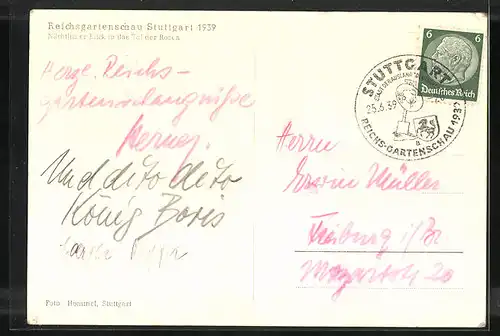 Reichsgartenschau Stuttgart 1939
Nächtlicher Blick in das Tal der Rosen
Herzl. Reichs-
gartenschaugrüsse
Werner.
Und dito dito
König Boris
6 6
Deutsches Reich
STUTTGART
STADT DER AUSLANDSDEUTSCHEN
25.6.39
REICHS-GARTENSCHAU 1939
Herrn
Erwin Müller
Freiburg i/Br
Mozartstr 20
Foto Hommel, Stuttgart